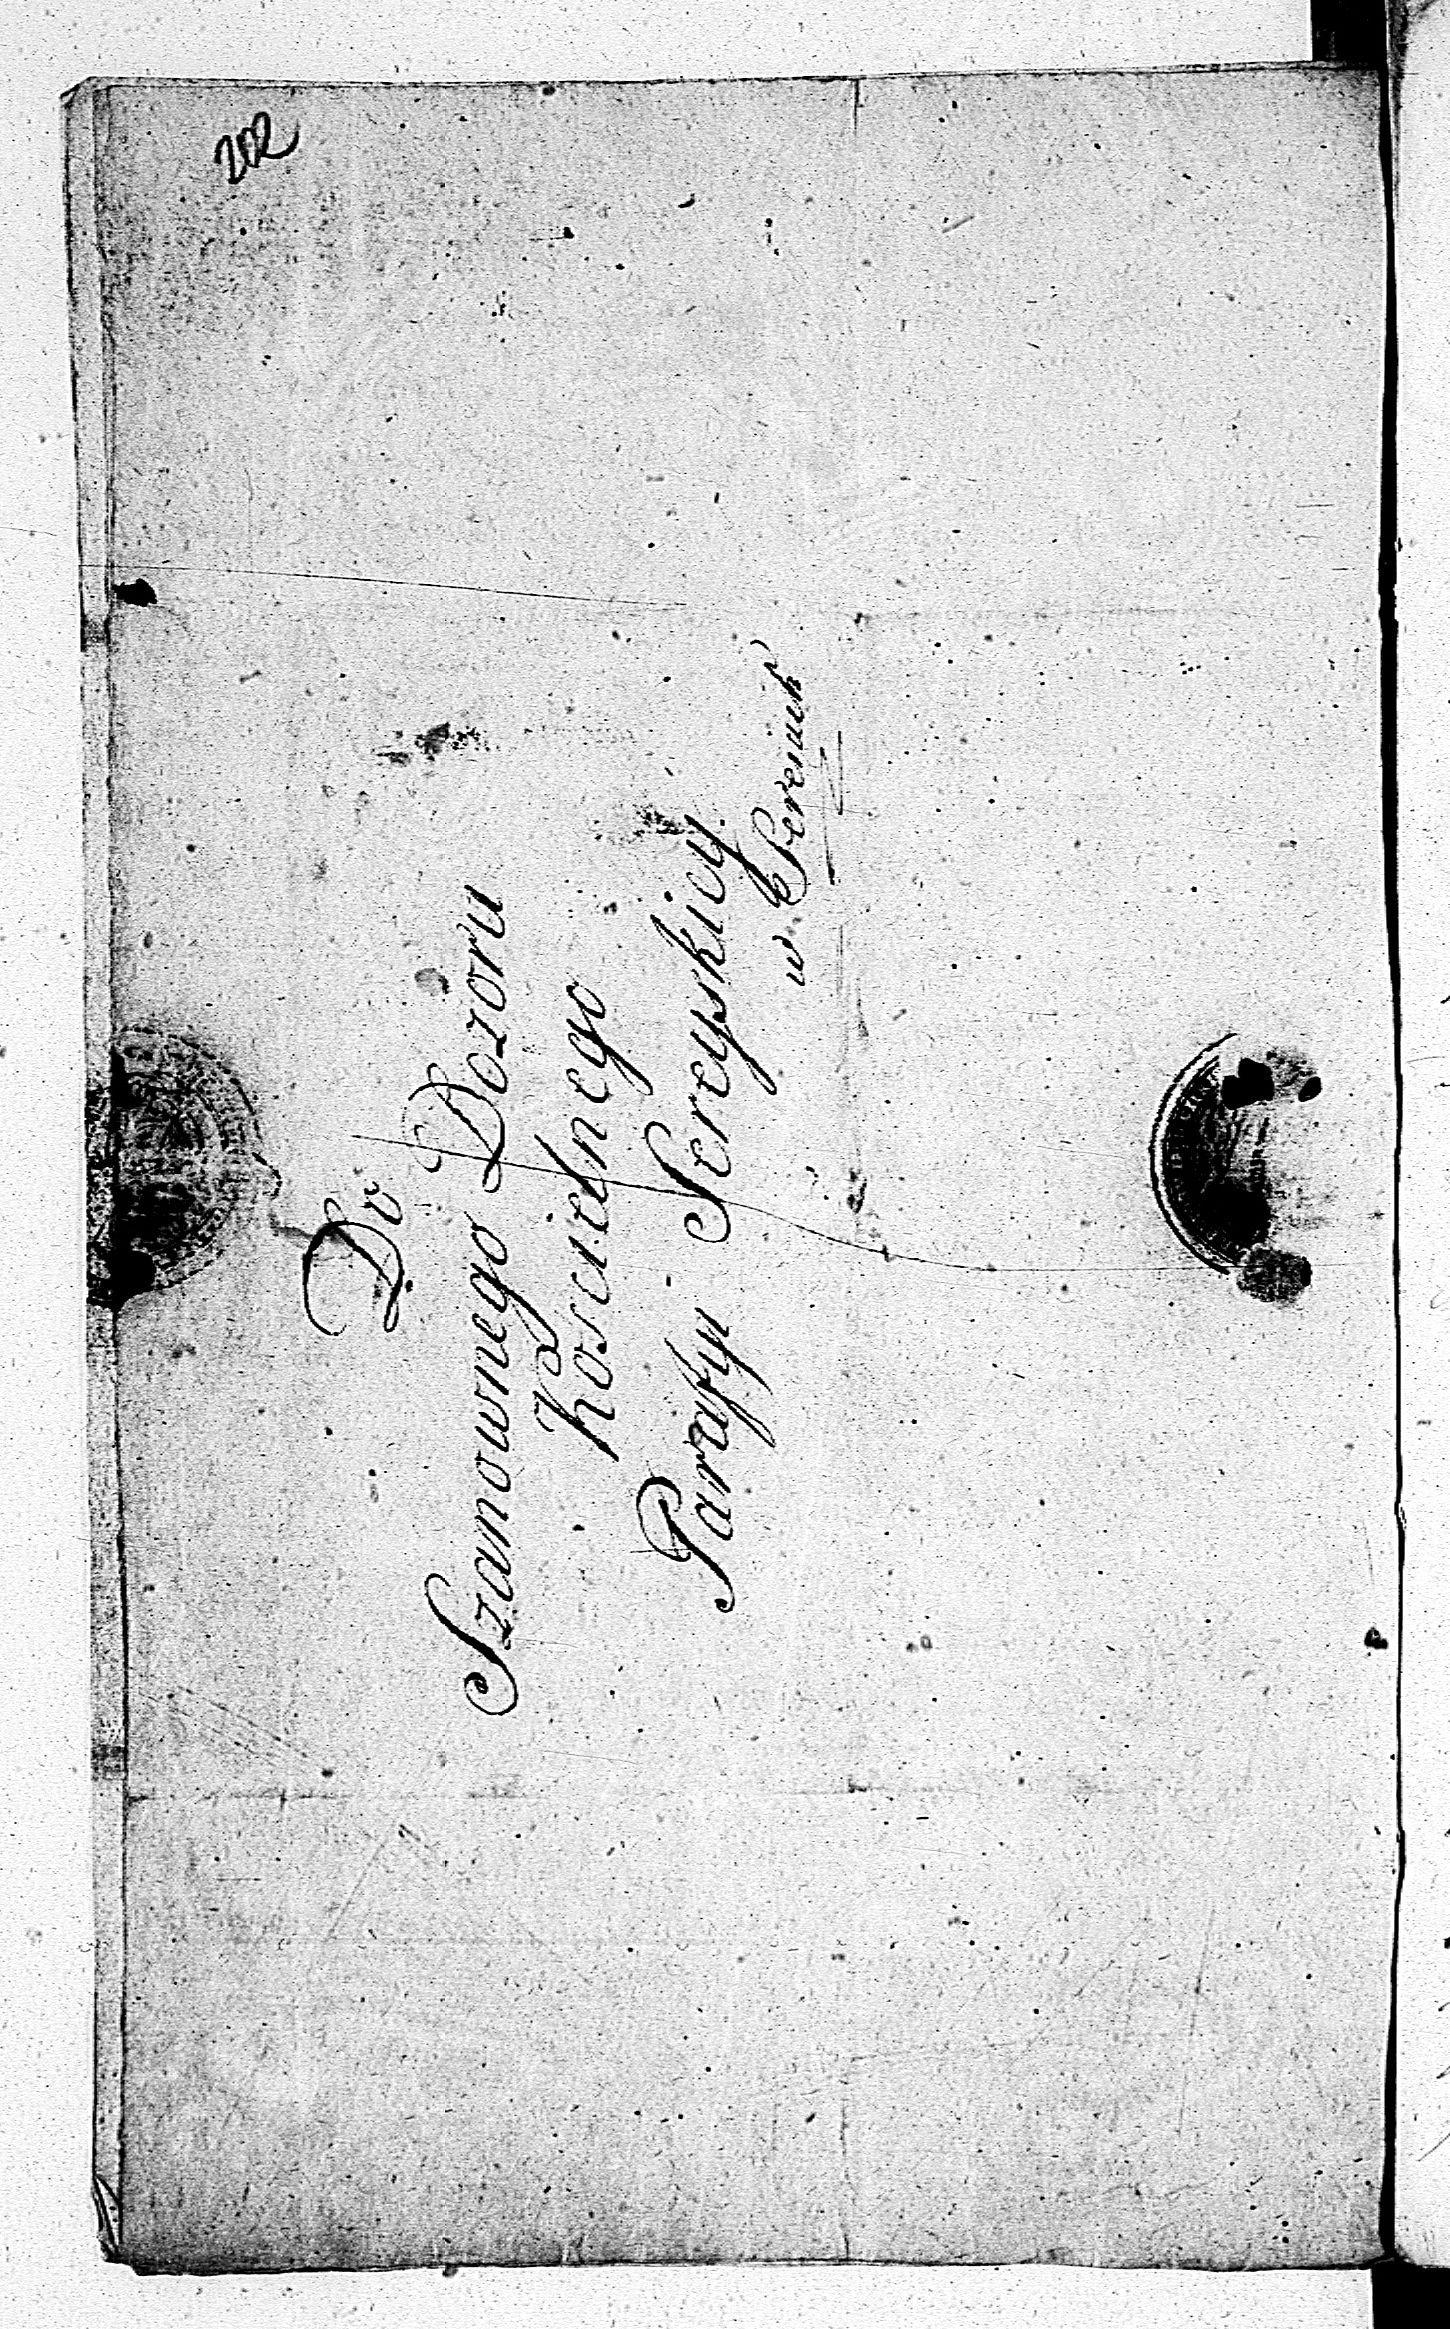 202
Do
Szanownego Dozoru
Koscielnego
Parafyi Sereyskiey
w Sereiach